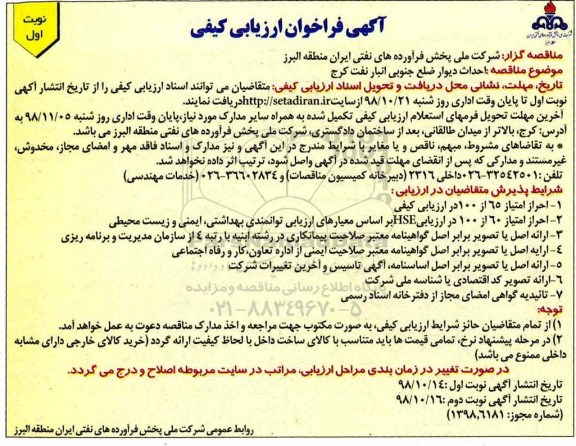 نوبت
اول
آگهی فراخوان ارزیابی کیفی
مناقصه گزار: شرکت ملی پخش فرآورده های نفتی ایران منطقه البرز
موضوع مناقصه: احداث دیوار ضلع جنوبی انبار نفت کرج
تاریخ، مهلت، نشانی محل دریافت و تحویل اسناد ارزیابی کیفی: متقاضیان می توانند اسناد ارزیابی کیفی را از تاریخ انتشار آگهی
نوبت اول تا پایان وقت اداری روز شنبه ۹۸/۱۰/۲۱ ازسایت http://setadiran.ir دریافت نمایند.
آخرین مهلت تحویل فرمهای استعلام ارزیابی کیفی تکمیل شده به همراه سایر مدارک مورد نیاز،پایان وقت اداری روز شنبه ۹۸/۱۱/۰۵ به
آدرس: کرج، بالاتر از میدان طالقانی، بعد از ساختمان دادگستری، شرکت ملی پخش فرآورده های نفتی منطقه البرز می باشد.
به تقاضاهای مشروط، مبهم، ناقص و یا مغایر با شرایط مندرج در این آگهی و نیز مدارک و اسناد فاقد مهر و امضای مجاز، مخدوش،
غیرمستند و مدارکی که پس از انقضای مهلت قید شده در آگهی واصل شود، ترتیب اثر داده نخواهد شد.
تلفن: ۳۲۵۴۲۵۰۱-۰۲۶داخلی ۲۳۱۶ (دبیرخانه کمیسیون مناقصات) و ۳۶۶۰۲۸۳۴-۰۲۶ (خدمات مهندسی)
شرایط پذیرش متقاضیان در ارزیابی:
۱- احراز امتیاز ۶۵ از ۱۰۰در ارزیابی کیفی
۲- احراز امتیاز ۶۰ از ۱۰۰ در ارزیابیHSEبر اساس معیارهای ارزیابی توانمندی بهداشتی، ایمنی و زیست محیطی
۳- ارائه اصل یا تصویر برابر اصل گواهینامه معتبر صلاحیت پیمانکاری در رشته ابنیه با رتبه ۴ از سازمان مدیریت و برنامه ریزی
۴- ارایه اصل یا تصویر برابر اصل گواهینامه معتبر صلاحیت ایمنی از اداره تعاون،کار و رفاه اجتماعی
۵- ارائه اصل یا تصویر برابر اصل اساسنامه، آگهی تاسیس و آخرین تغییرات شرکت
۶- ارائه تصویر کد اقتصادی یا شناسه ملی شرکت
پایگاه اطلاع رسانی مناقصه و مزایده
۷- تائیدیه گواهی امضای مجاز از دفترخانه اسناد رسمی
۰۲۱-۸۸۳۴۹۶۷۰-۵
توجه:
۱) از تمام متقاضیان حائز شرایط ارزیابی کیفی، به صورت مکتوب جهت مراجعه و اخذ مدارک مناقصه دعوت به عمل خواهد آمد.
۲) در مرحله پیشنهاد نرخ، تمامی قیمت ها باید متناسب با کالای ساخت داخل با لحاظ کیفیت ارائه گردد (خرید کالای خارجی دارای مشابه
داخلی ممنوع می باشد)
در صورت تغییر در زمان بندی مراحل ارزیابی، مراتب در سایت مربوطه اصلاح و درج می گردد.
تاریخ انتشار آگهی نوبت اول :۹۸/۱۰/۱۴
تاریخ انتشار آگهی نوبت دوم :۹۸/۱۰/۱۶
(شماره مجوز: ۱۳۹۸,۶۱۸۱)
روابط عمومی شرکت ملی پخش فرآورده های نفتی ایران منطقه البرز